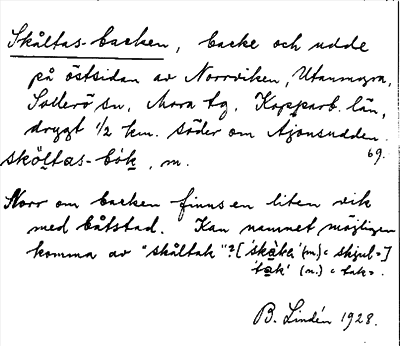 Skåltas-backen, backe och udde
på östsidan av Norrviken, Utanmyra,
Sollerö sn, Mora tg, Kopparb. län,
drygt ½ km. söder om Ajönsudden.
69.
sköltas-bók, m.
Norr om backen finns en liten vik
med båtstad. Kan namnet möjligen
komma av "skåltak"? ['skåka' (m) = skjul=]
'tak' (n.) = tak=.
B. Lindén 1928.